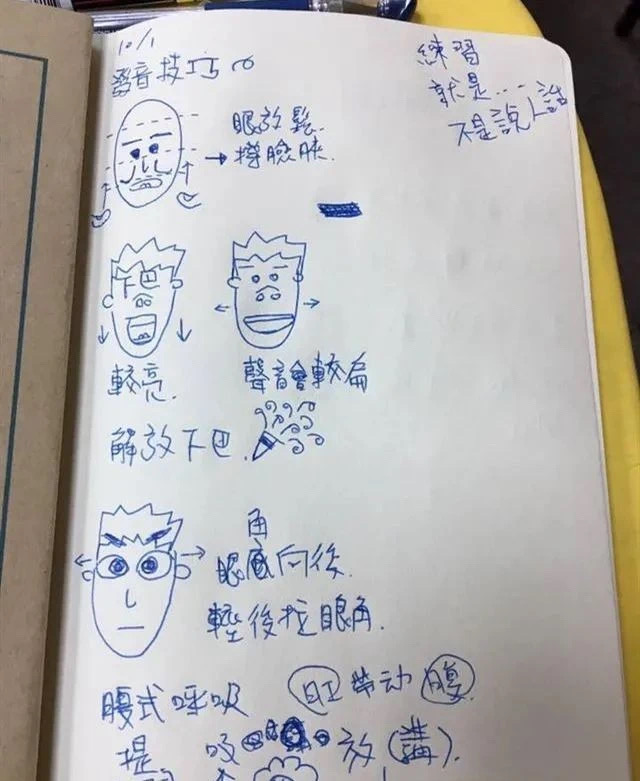 10/1
發音技巧
練習
就是...
不是說人話
眼放鬆
撐臉頰
下巴
較亮
聲音會較扁
解放下巴
角
眼向後
輕後拉眼角
腹式呼吸 肛帶动腹
提 吸 放(講)